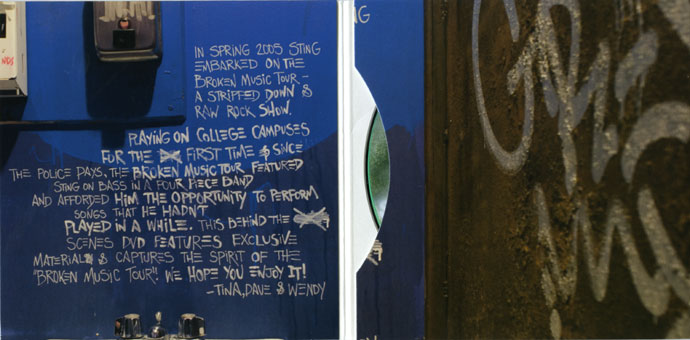 IN SPRING 2005 STING
EMBARKED ON THE
BROKEN MUSIC TOUR –
A STRIPPED DOWN &
RAW ROCK SHOW.
PLAYING ON COLLEGE CAMPUSES
FOR THE FIRST TIME & SINCE
THE POLICE DAYS, THE BROKEN MUSIC TOUR FEATURED
STING ON BASS IN A FOUR PIECE BAND
AND AFFORDED HIM THE OPPORTUNITY TO PERFORM
SONGS THAT HE HADN'T
PLAYED IN A WHILE. THIS BEHIND THE
SCENES DVD FEATURES EXCLUSIVE
MATERIAL & CAPTURES THE SPIRIT OF THE
"BROKEN MUSIC TOUR". WE HOPE YOU ENJOY IT!
–TINA, DAVE & WENDY
NG